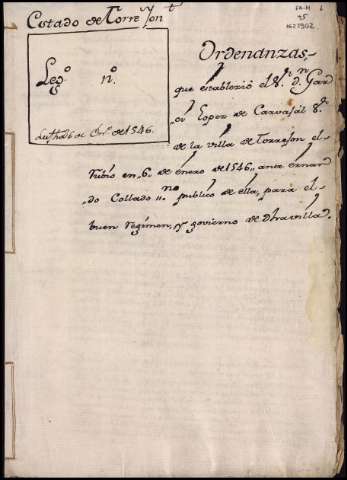 Estado de Torrejon
Leg.º n.º
Su fha 6 de En.º de 1546.
Ordenanzas,
que establecio el S.r D.n Gar
ci Lopez de Carvajal S.r
de la villa de Torrejon el
Rubio en 6, de enero de 1546, ante ernan
do Collado no publico de ella, para el
buen regimen, y govierno de dha villa.